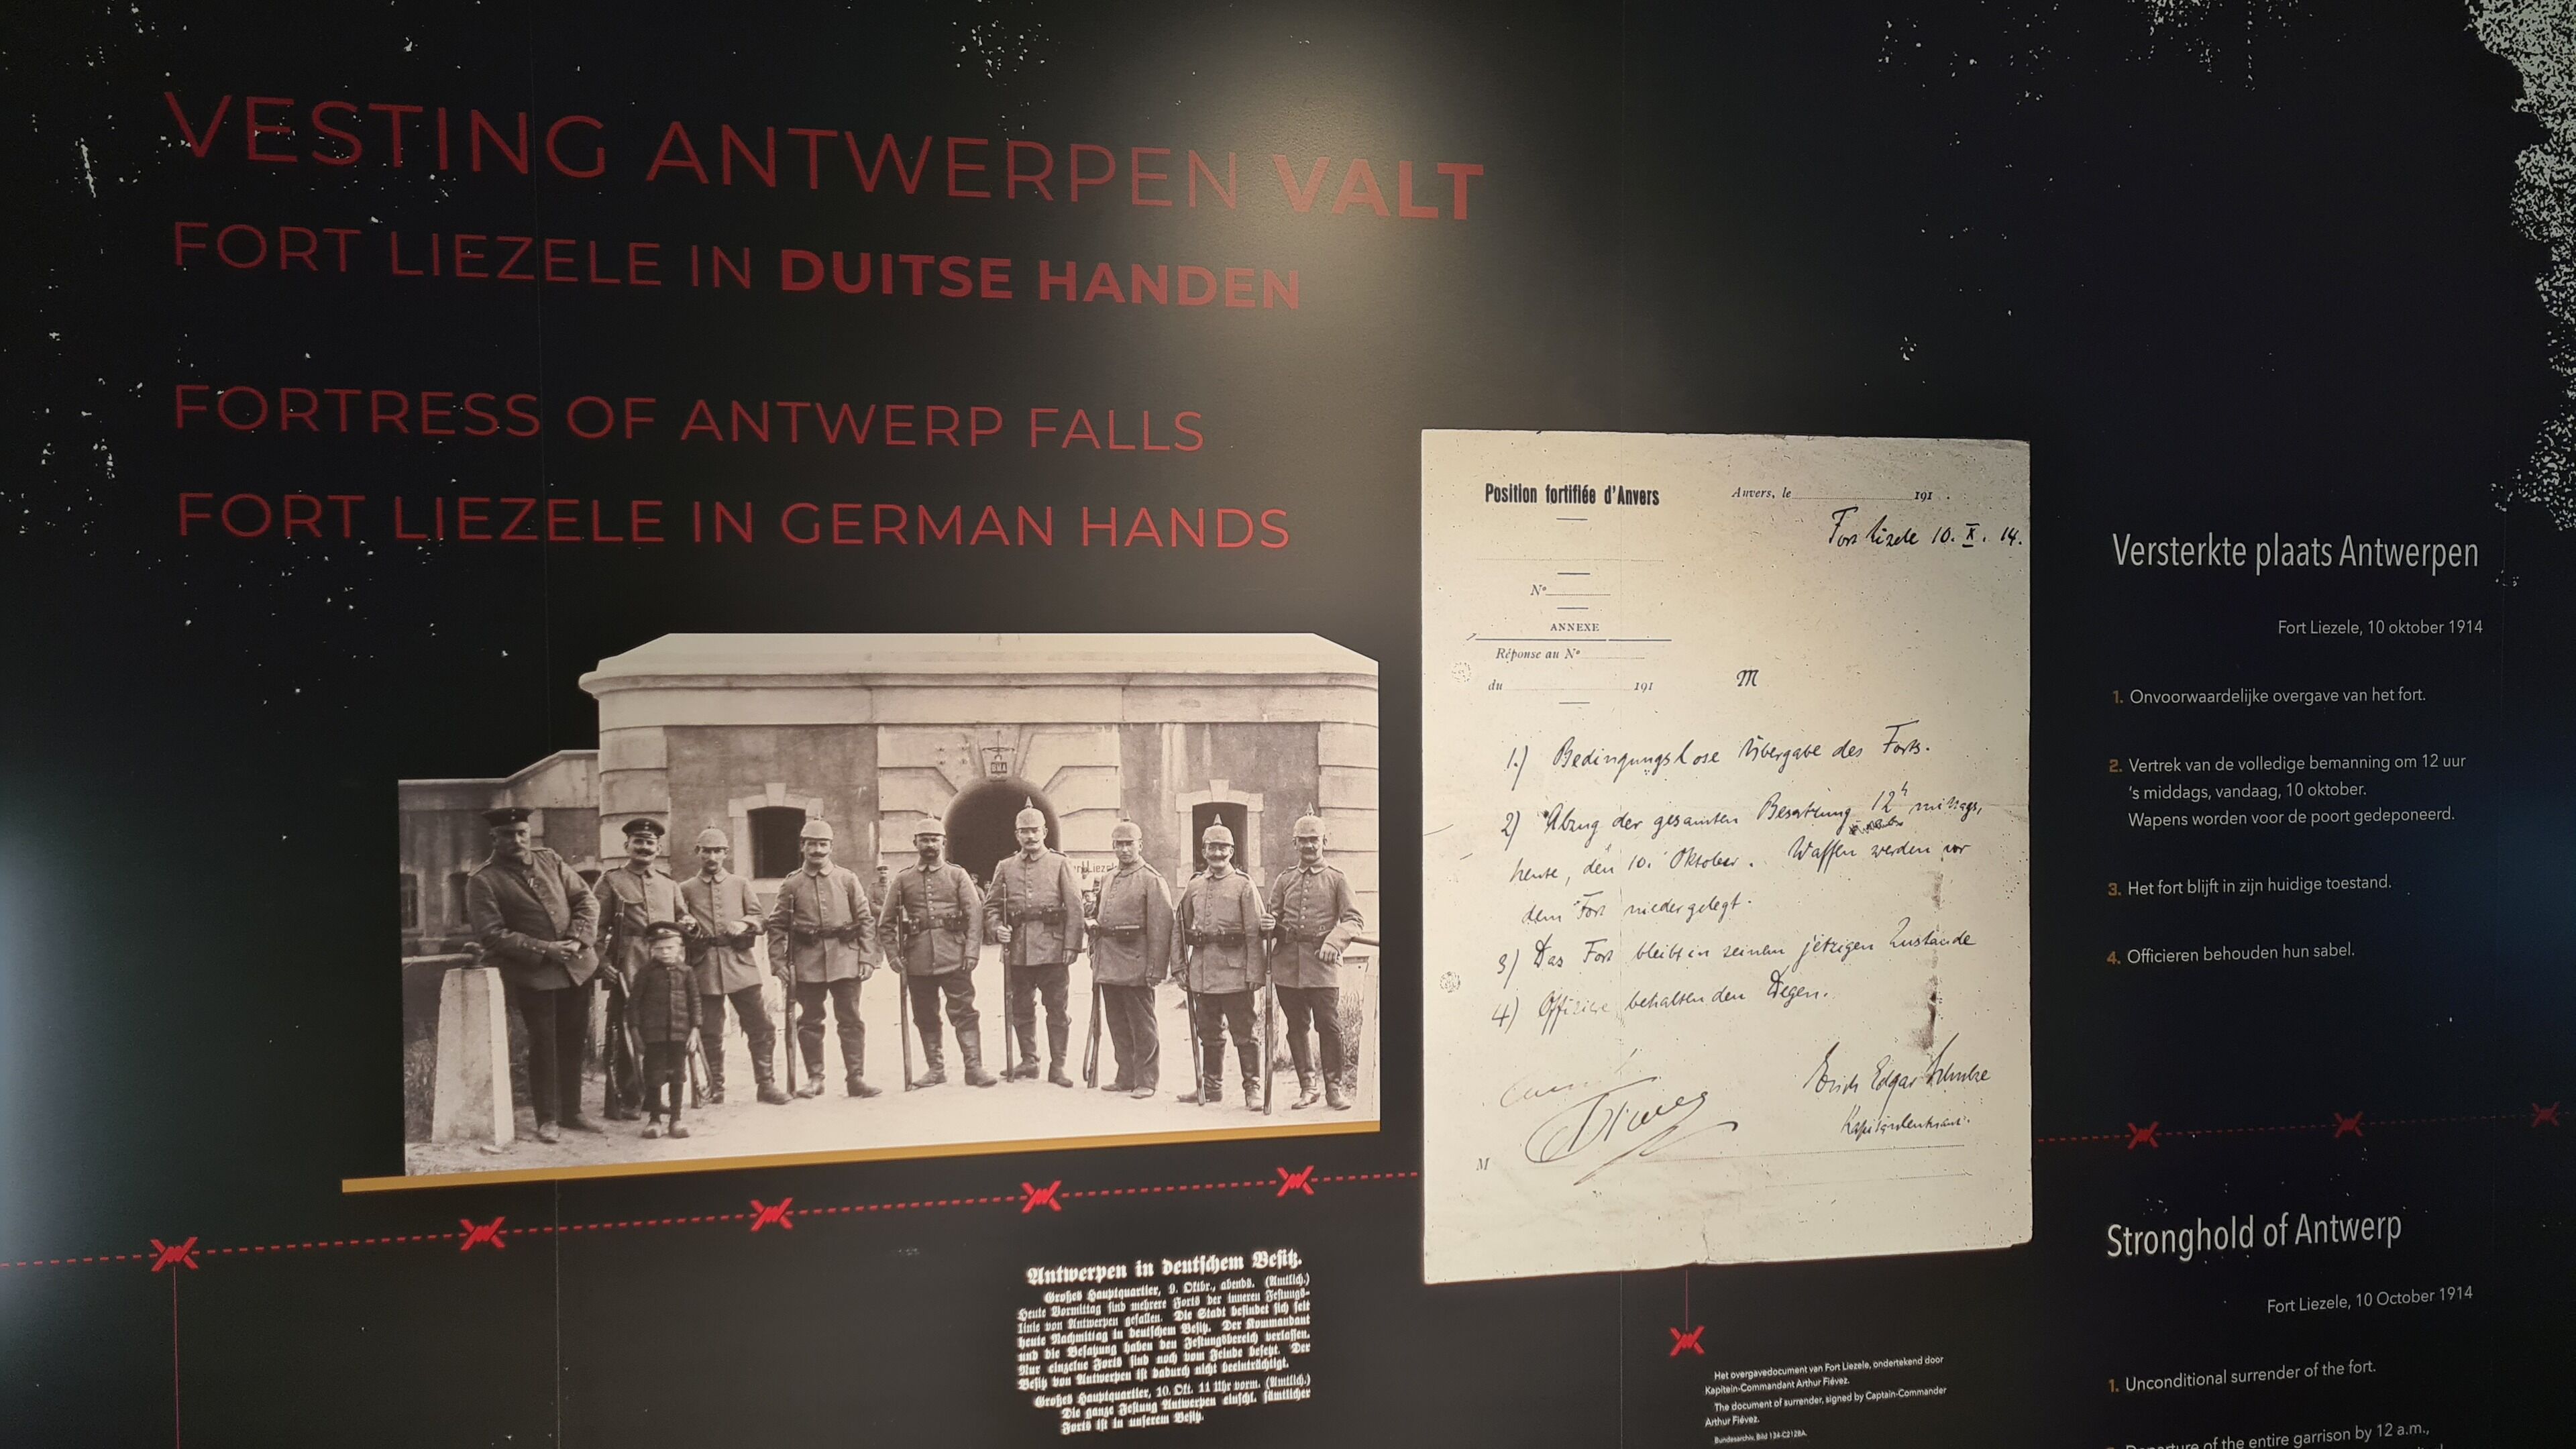 VESTING ANTWERPEN VALT
FORT LIEZELE IN DUITSE HANDEN
FORTRESS OF ANTWERP FALLS
FORT LIEZELE IN GERMAN HANDS
Position fortifiée d'Anvers
Anvers, le 191 .
Fort Liezele 10. X. 14.
Nº
ANNEXE
Réponse au Nº
du 191
M
1.) Bedingungslose Übergabe des Forts.
2) Abzug der gesamten Besatzung 12h mittags,
heute, den 10. Oktober. Waffen werden vor
dem Fort niedergelegt.
3) Das Fort bleibt in seinem jetzigen Zustande
4) Offiziere behalten den Degen.
Erich Edgar Schulze
Kapitänleutnant.
M
Versterkte plaats Antwerpen
Fort Liezele, 10 oktober 1914
1. Onvoorwaardelijke overgave van het fort.
2. Vertrek van de volledige bemanning om 12 uur
's middags, vandaag, 10 oktober.
Wapens worden voor de poort gedeponeerd.
3. Het fort blijft in zijn huidige toestand.
4. Officieren behouden hun sabel.
Antwerpen in deutschem Besitz.
Großes Hauptquartier, 9. Oktbr., abends. (Amtlich.)
Heute Vormittag sind mehrere Forts der inneren Festungs-
linie von Antwerpen gefallen. Die Stadt befindet sich seit
heute Nachmittag in deutschem Besitz. Der Kommandant
und die Besatzung haben den Festungsbereich verlassen.
Nur einzelne Forts sind noch vom Feinde besetzt. Der
Besitz von Antwerpen ist dadurch nicht beeinträchtigt.
Großes Hauptquartier, 10. Okt. 11 Uhr vorm. (Amtlich.)
Die ganze Festung Antwerpen einschl. sämtlicher
Forts ist in unserem Besitz.
Het overgavedocument van Fort Liezele, ondertekend door
Kapitein-Commandant Arthur Fiévez.
The document of surrender, signed by Captain-Commander
Arthur Fiévez.
Bundesarchiv, Bild 134-C2128A.
Stronghold of Antwerp
Fort Liezele, 10 October 1914
1. Unconditional surrender of the fort.
Departure of the entire garrison by 12 a.m.,